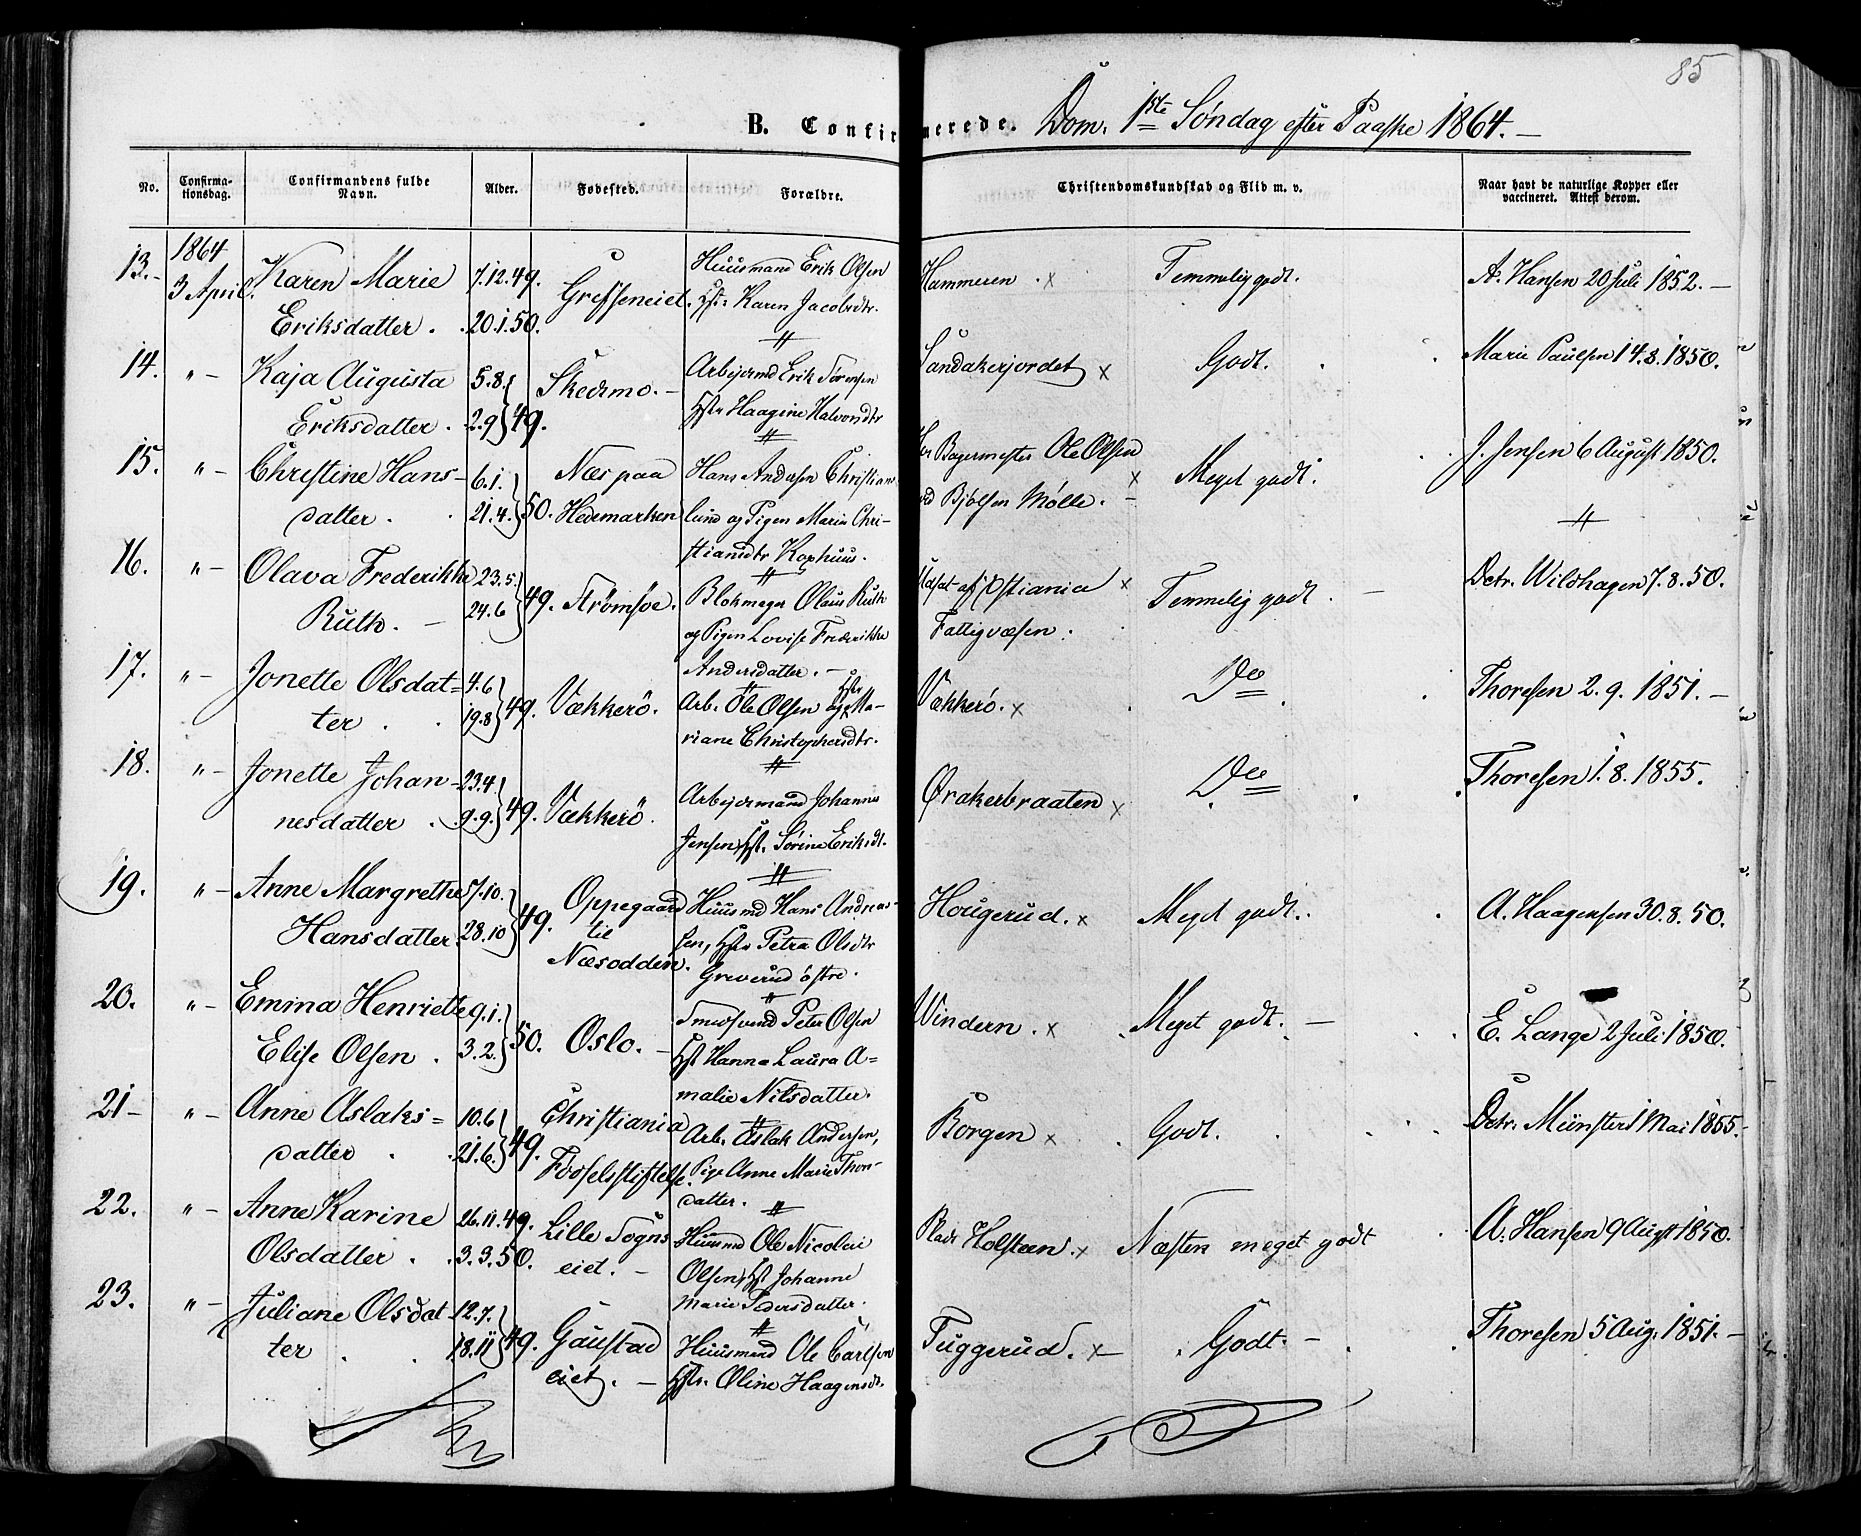 85
B. Confirmerede. Dom. 1ste Søndag efter Paaske 1864.
No. Confirma-tionsdag. Confirmandens fulde Navn. Alder. Fødested. Forældre. Christendomskundskab og Flid m. v. Naar havt de naturlige Kopper eller vaccineret. Attest derom.
1864
13. 3 April. Karen Marie 7.12.49. Grefseneiet. Huusmand Erik Olsen Hammeren. x Temmelig godt. A. Hansen 20 Juli 1852.
Eriksdatter. 20.1.50. Hst: Karen Jacobsdtr.
14. " Kaja Augusta 5.8. Skedsmo. Arbejdsmd Erik Sørensen Sandakerjordet x Godt. Marie Paulsen 14.8.1850.
Eriksdatter. 2.9 49. Hstr Haagine Halvorsdtr
15. " Christine Hans- 6.1. Næs paa Hans Andersen Christians- Hos Bagermester Ole Olsen x Meget godt. J. Jensen 6 August 1850.
datter. 21.4. 50. Hedemarken lund og Pigen Marie Chri- ved Bjølsen Mølle.
stiansdtr Kophuus.
16. " Olava Frederikke 23.5. 49. Strømsøe. Blokmager Olaus Ruth Udsat af Xstiania x Temmelig godt. Dctr. Wildhagen 7.8.50.
Ruth. 24.6 og Pigen Lovise Frederikke Fattigvæsen.
Andersdatter.
17. " Jonette Olsdat= 4.6 49. Vækkerö. Arb. Ole Olsen og Hstr Ma- Vækkerö. x Do Thoresen 2.9.1851.
ter. 19.8 riane Christophersdtr.
18. " Jonette Johan- 23.4 49. Vækkerö. Arbejdsmand Johannes Ørakerbraaten x Do Thoresen 1.8.1855.
nesdatter. 9.9. Jensen, Hst. Sørine Eriksdt.
19. " Anne Margrethe 7.10. 49. Oppegaard Huusmd Hans Andreas- Hougerud. x Meget godt. A. Haagensen 30.8.50.
Hansdatter. 28.10 til sen, Hstr Petra Olsdtr
Næsodden. Greverud östre.
20. " Emma Henriette 9.1. 50. Oslo. Smedsvend Peter Olsen Vindern. x Meget godt. E. Lange 2 Juli 1850.
Elise Olsen. 3.2. Hst Hanna Laura A=
malie Nilsdatter.
21 " Anne Aslaks= 10.6 49. Christiania Arb. Aslak Andersen, Borgen x Godt. Dctr. Münster 1 Mai 1855.
datter 21.6. Fødselsstiftelse. Pige Anne Marie Thor-
datter.
22. " Anne Karine 26.11.49. Lille Sogns Huusmd Ole Nicolai Plads Holsteen. x Næsten meget godt A. Hansen 9 August 1850.
Olsdatter. 3.3.50. eiet. Olsen, Hst Johanne
Marie Pedersdatter.
23. " Juliane Olsdat 12.7. 49. Gaustad Huusmand Ole Carlsen Tuggerud. x Godt. Thoresen 5 Aug. 1851.
ter 18.11 eiet. Hstr. Oline Haagensdt.